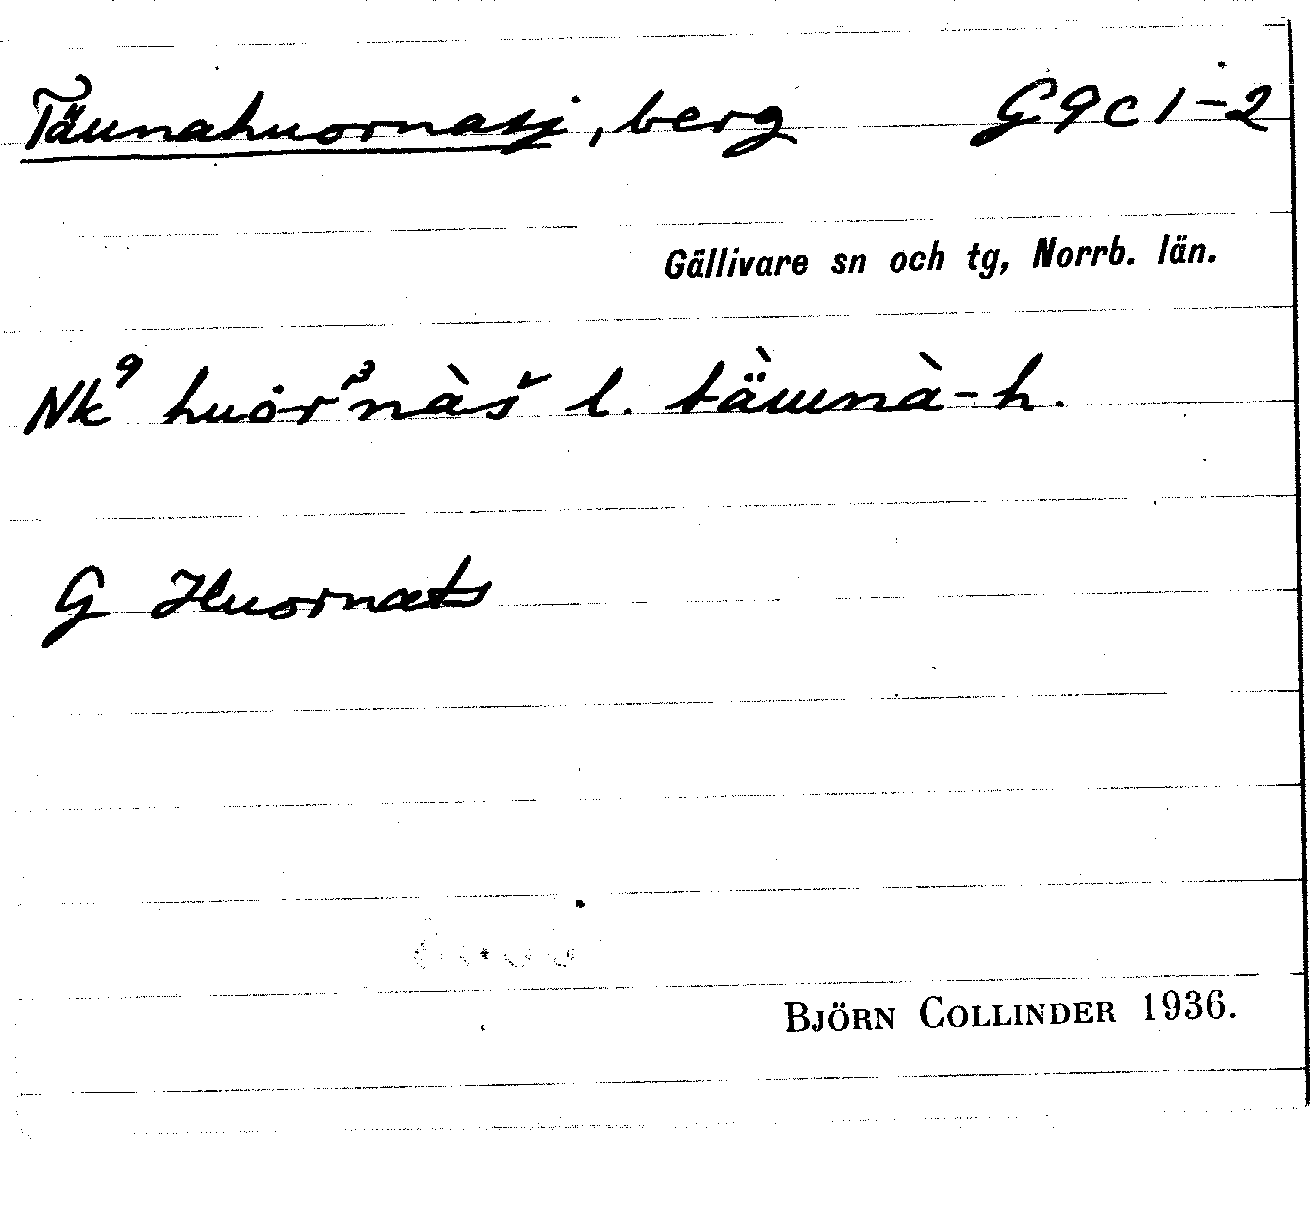 Täunahuornasj, berg G9c1-2
Gällivare sn och tg, Norrb. län.
Nk⁹ huȯrᵌnàš l. täɯnà-h.
G Huornats
BJÖRN COLLINDER 1936.